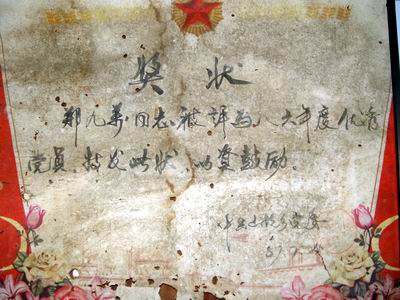 奖状
郑九万同志被评为八六年度优秀
党员,特发此状,以资鼓励。
中共
87.7.